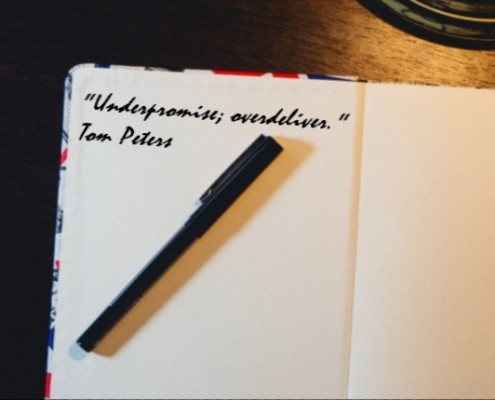 "Underpromise; overdeliver."
Tom Peters